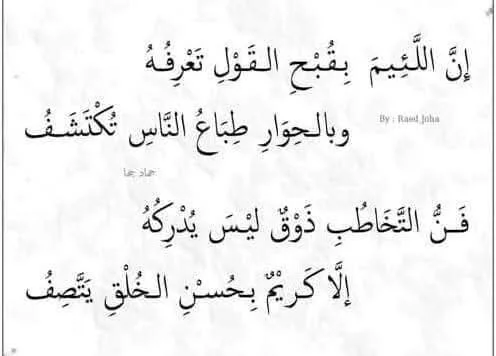 إِنَّ اللَّـئِـيمَ بِـقُبْـحِ الـقَـوْلِ تَعْرِفُـهُ
وبالـحِوَارِ طِبَـاعُ النَّـاسِ تُكْتَشَـفُ
By : Raed Joha
حماد جحا
فَـنُّ التَّخَاطُبِ ذَوْقٌ لَيْـسَ يُدْرِكُهُ
إِلَّا كَـرِيْمٌ بِـحُسـْنِ الـخُلْقِ يَتَّصِفُ